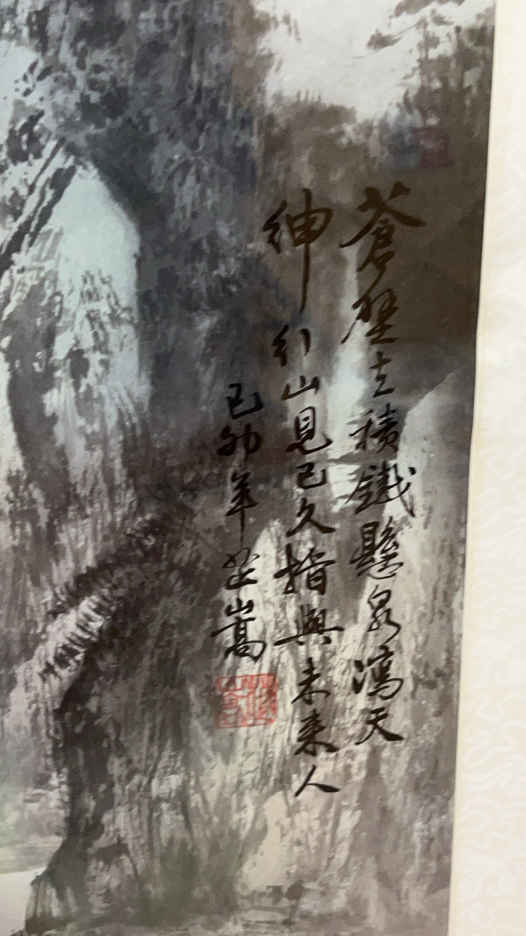 蒼壁立積鐵懸泉瀉天
紳行山見已久指與未來人
己卯年芝嵩